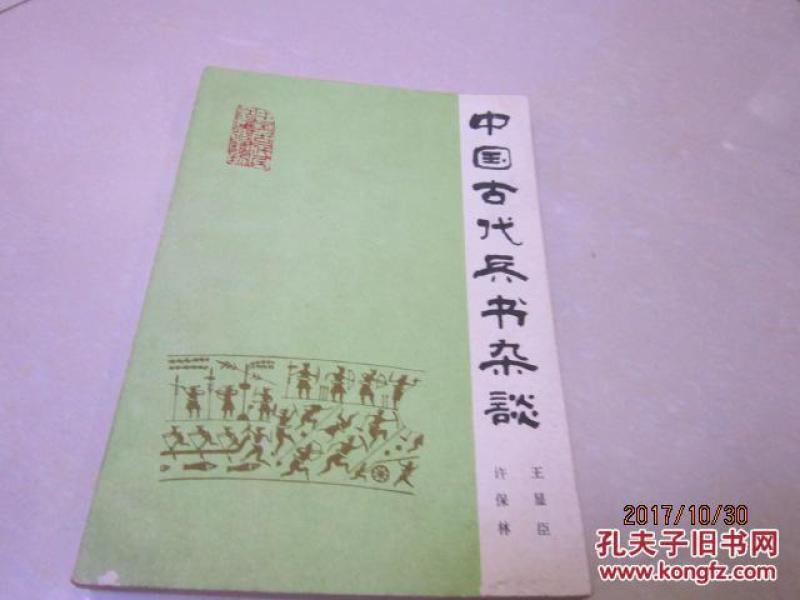 中国古代兵书杂談
王显臣
许保林
2017/10/30
孔夫子旧书网
www.kongfz.com